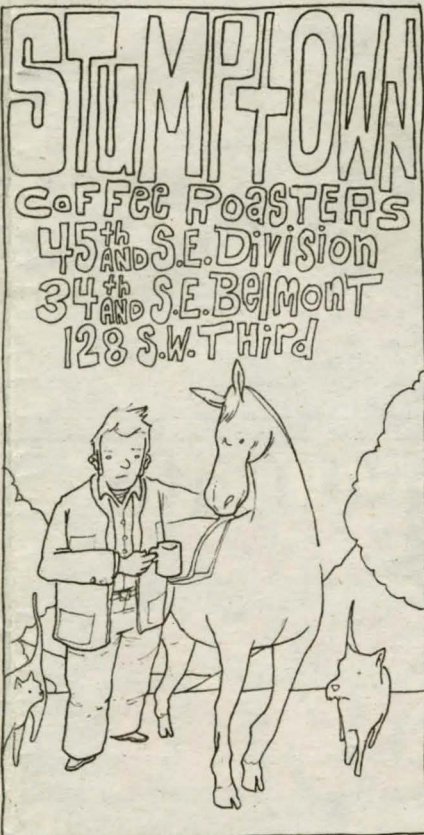 STuMPtOWN
CoFFee RoaSTERs
45th AND S.E. Division
34th AND S.E. BelMonT
128 S.W. THird